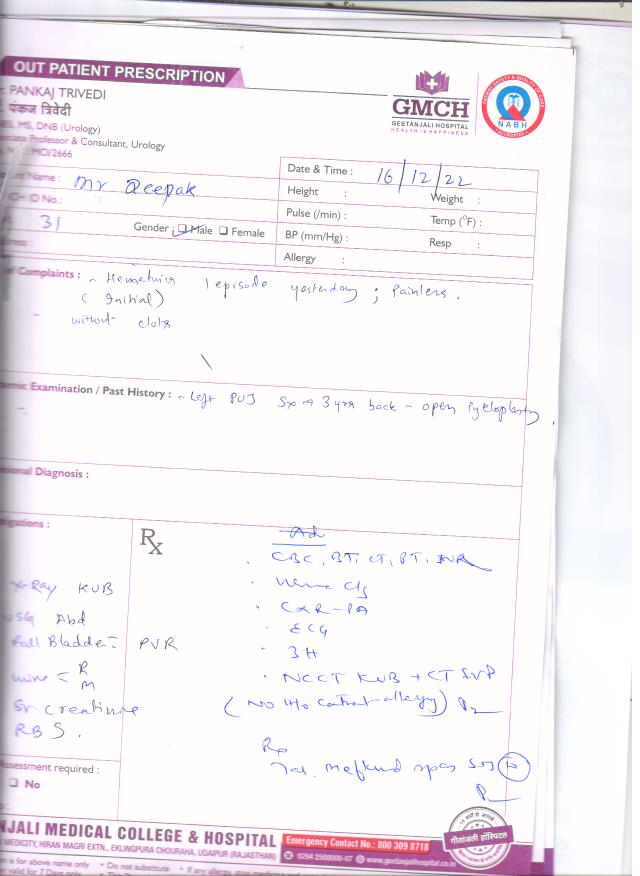 OUT PATIENT PRESCRIPTION
PANKAJ TRIVEDI
पंकज त्रिवेदी
BS, MS, DNB (Urology)
ociate Professor & Consultant, Urology
MCI/2666
GMCH
GEETANJALI HOSPITAL
HEALTH IS HAPPINESS
NABH
Name : Mr Deepak
CH ID No.:
31
Gender : Male Female
Date & Time : 16/12/22
Height : Weight :
Pulse (/min) : Temp (°F) :
BP (mm/Hg) : Resp :
Allergy :
Complaints : - Hematuria 1 episode yesterday ; Painless.
(Initial)
- without clots
emic Examination / Past History : - Left PUJ Sx → 3 yrs back - open Pyeloplasty.
isional Diagnosis :
tigations :
X-Ray KUB
USG Abd
Full Bladder PVR
Urine R
M
Sr Creatinine
RBS.
Rx
Ad
CBC, BT, CT, PT, INR
Urine C/s
CXR-PA
ECG
3H
NCCT KUB + CT IVP
(No H/o contrast allergy)
Rx
Tab. Meftal spas
Assessment required :
No
NJALI MEDICAL COLLEGE & HOSPITAL
MEDICITY, HIRAN MAGRI EXTN., EKLINGPURA CHOURAHA, UDAIPUR (RAJASTHAN)
Emergency Contact No.: 800 309 8718
0294 2500000-07 www.geetanjalihospital.co.in
गीतांजली हॉस्पिटल
n is for above name only • Do not substitute • If any allergy
valid for 7 Days only